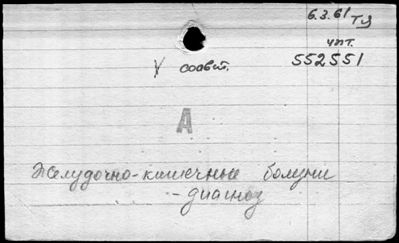 6.3.61 Тэ
чит.
V соавт. 552551
А
Желудочно-кишечные болезни
- диагноз